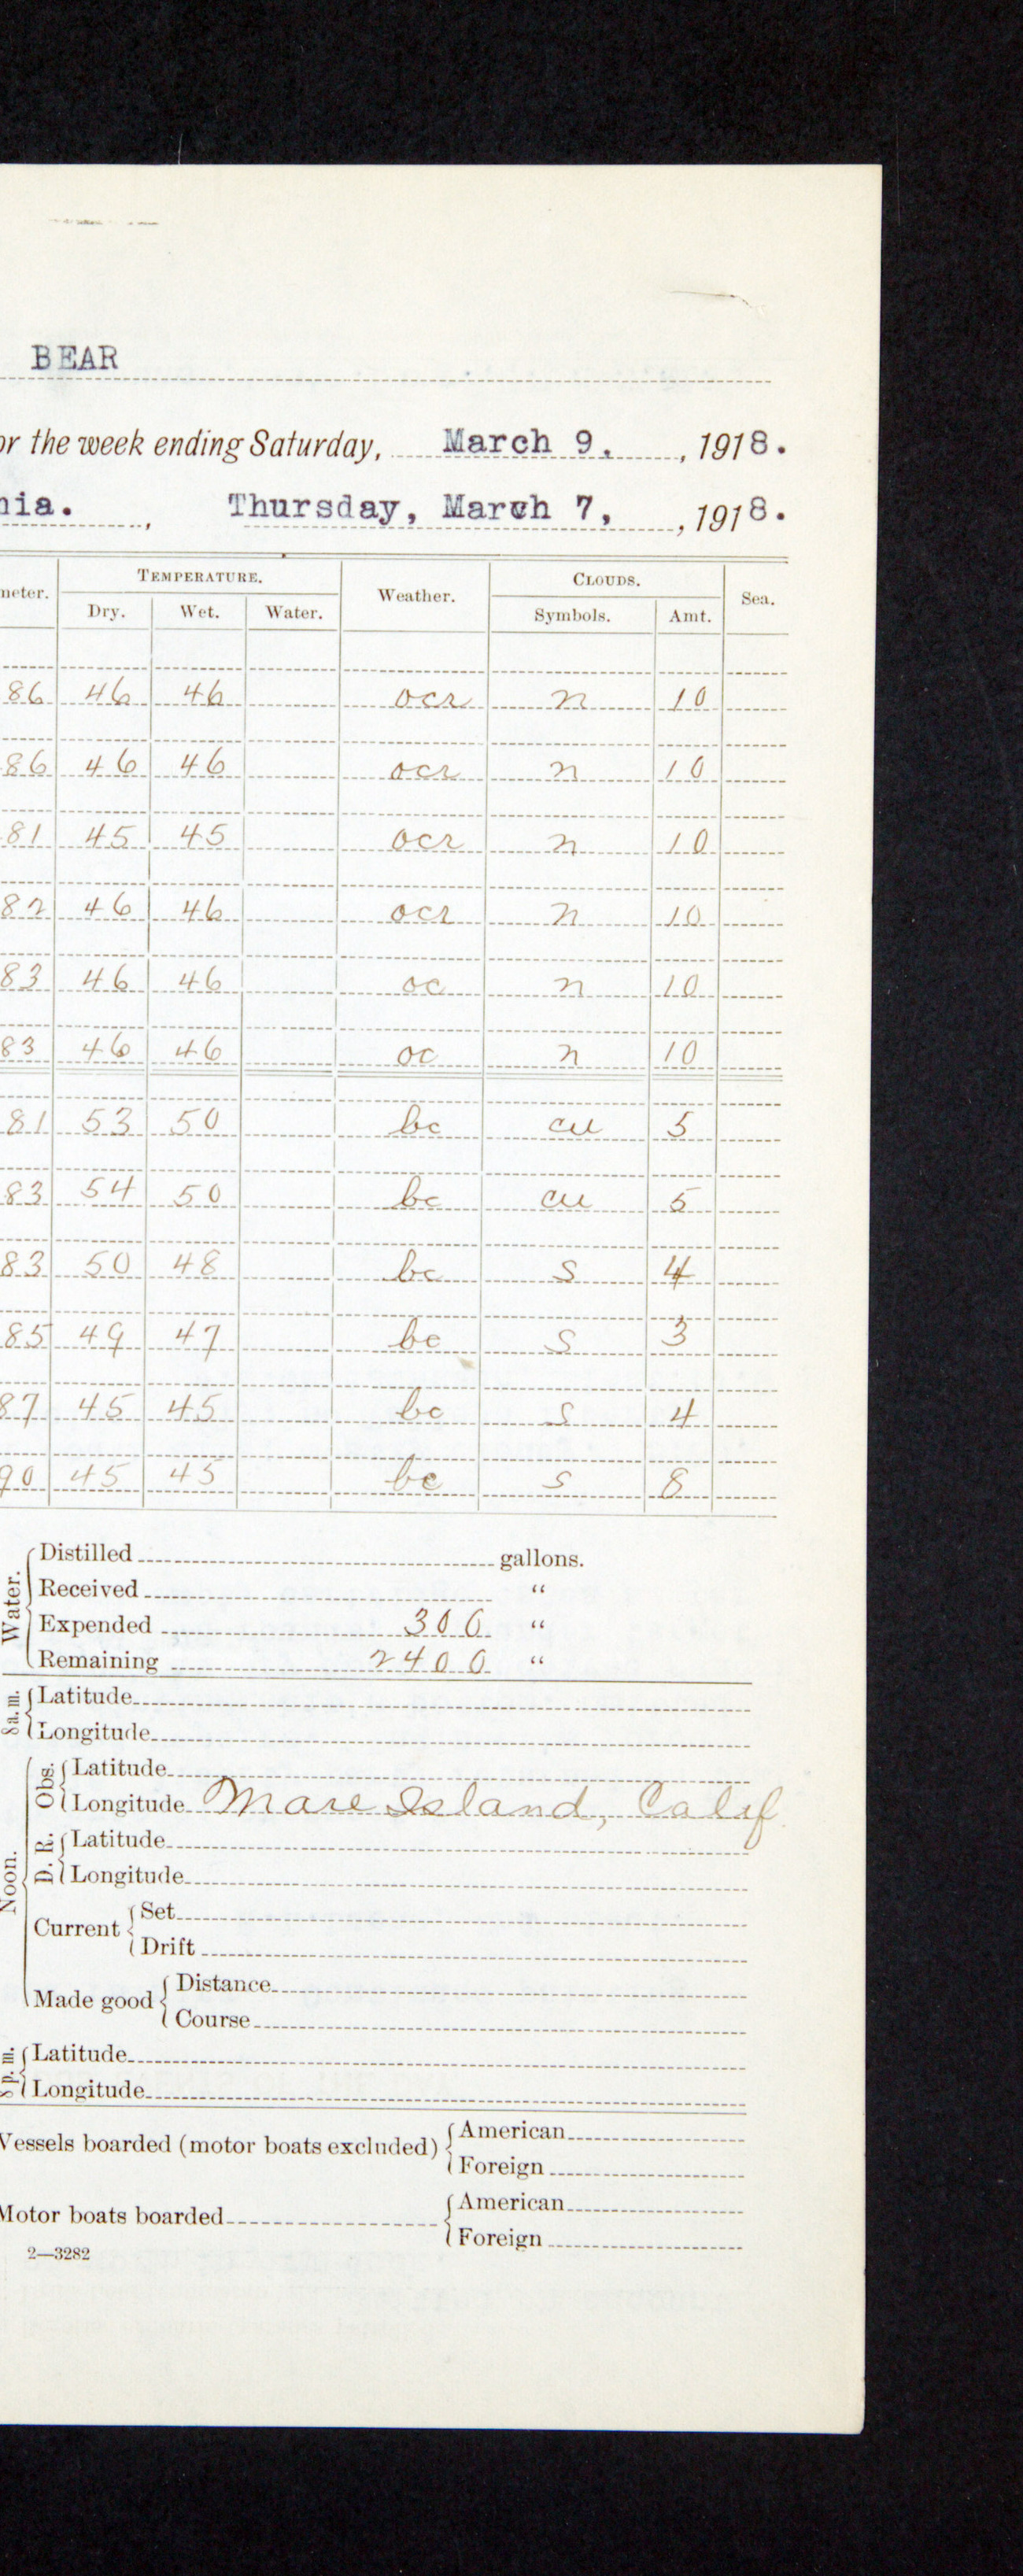 BEAR
or the week ending Saturday, March 9, , 1918.
nia. , Thursday, March 7, , 1918.
meter. TEMPERATURE. Weather. CLOUDS. Sea.
Dry. Wet. Water. Symbols. Amt.
86 46 46 ocr n 10
86 46 46 ocr n 10
81 45 45 ocr n 10
82 46 46 ocr n 10
83 46 46 oc n 10
83 46 46 oc n 10
81 53 50 bc cu 5
83 54 50 bc cu 5
83 50 48 bc s 4
85 49 47 bc s 3
87 45 45 bc s 4
90 45 45 bc s 8
Water.
Distilled gallons.
Received "
Expended 300 "
Remaining 2400 "
8 a.m.
Latitude
Longitude
Noon.
Obs.
Latitude
Longitude Mare Island, Calif
D. R.
Latitude
Longitude
Current
Set
Drift
Made good
Distance
Course
8 p.m.
Latitude
Longitude
Vessels boarded (motor boats excluded)
American
Foreign
Motor boats boarded
American
Foreign
2—3282